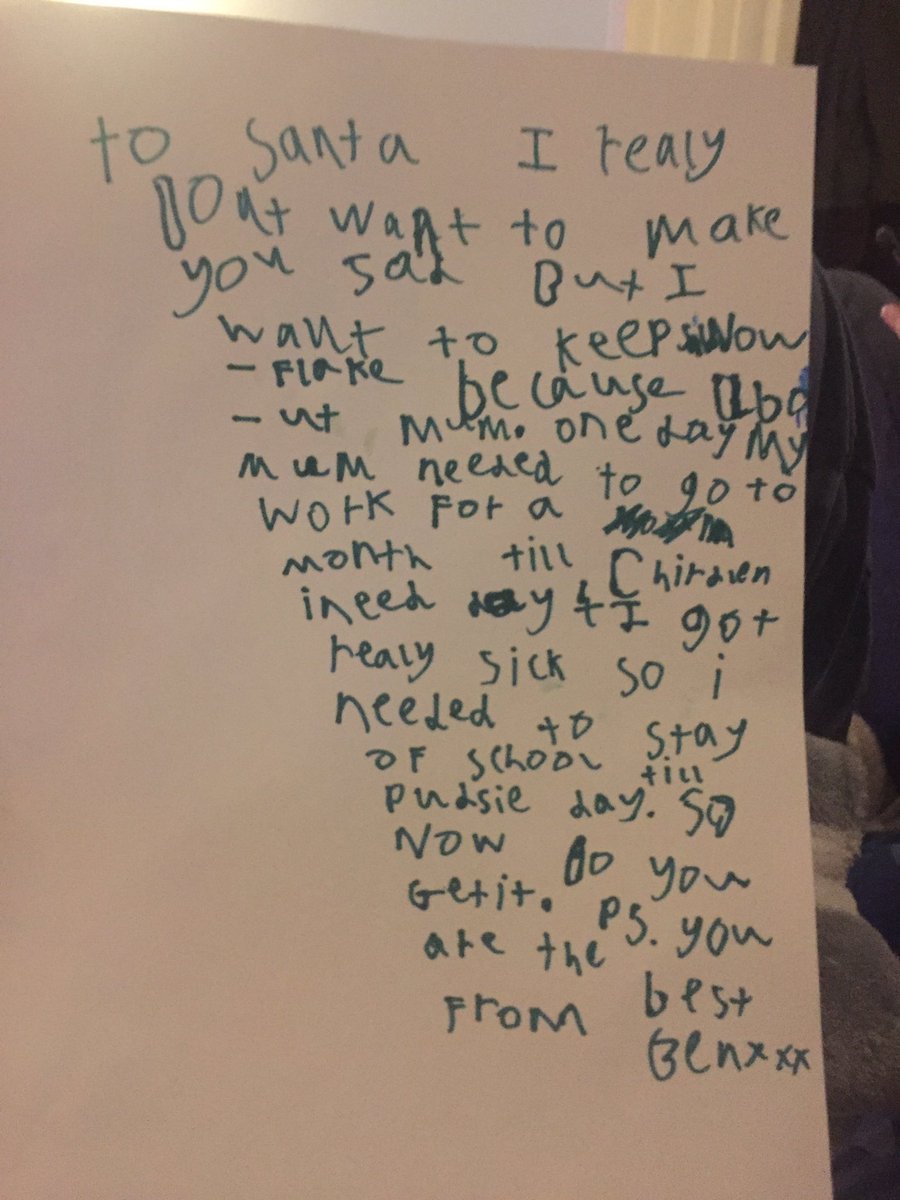 to Santa I realy
Dont want to make
you sad But I
want to keep snow
- Flake because
- ut mum. one day My
mum needed to go to
work for a
month till Chirdren
ineed day & I got
realy sick so i
needed to stay
of school till
pudsie day. So
Now Do you
Get it. PS. you
are the best
From Benxxx